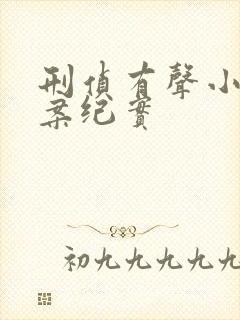 刑偵有聲小
案纪實
初九九九九九